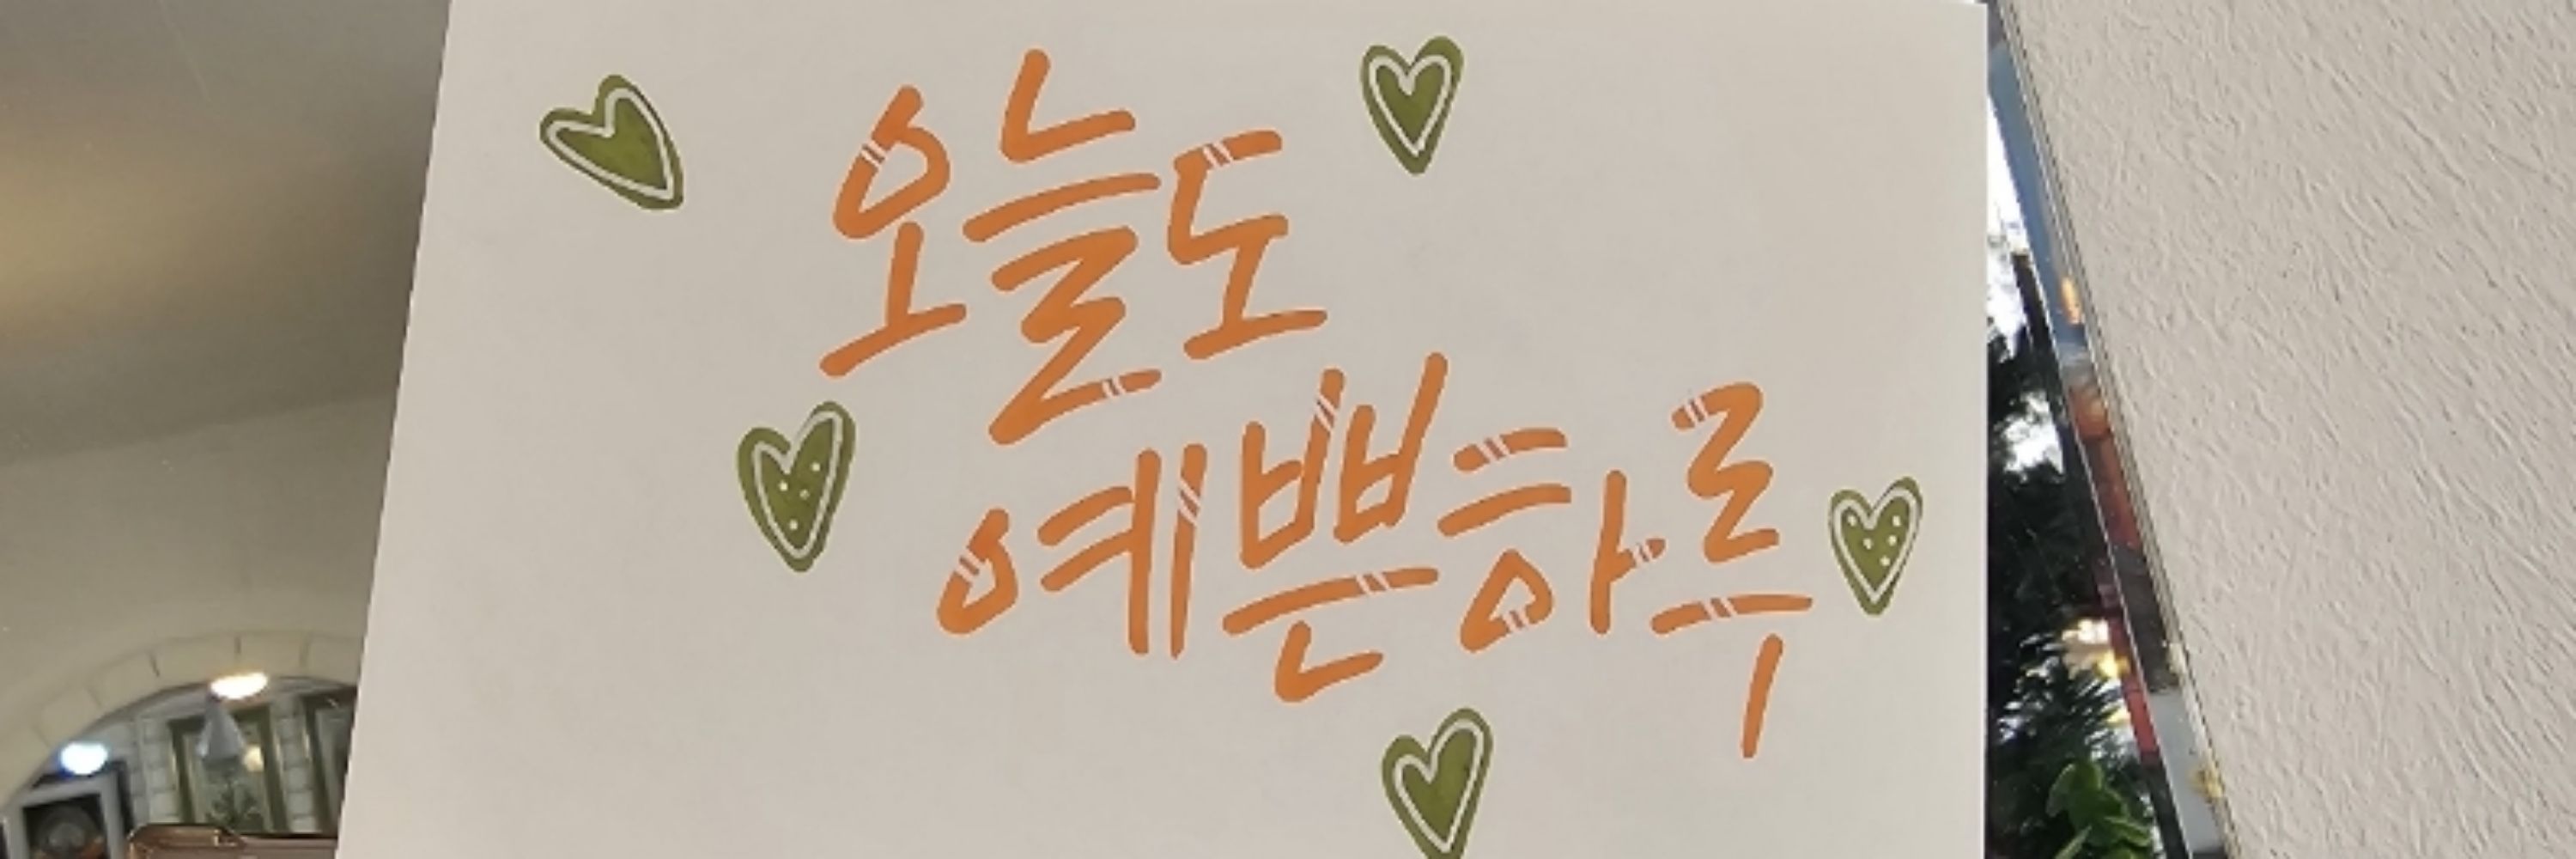 오늘도
예쁜하루